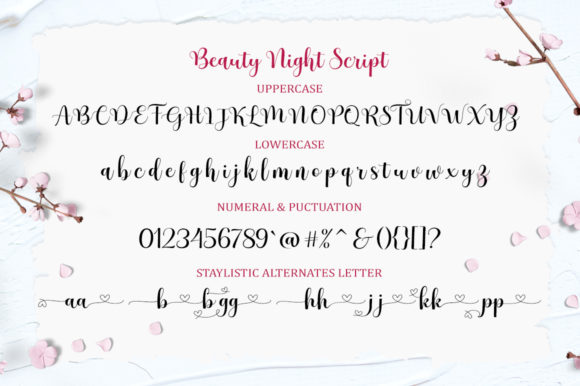 Beauty Night Script
UPPERCASE
ABCDEFGHIJKLMNOPQRSTUVWXYZ
LOWERCASE
abcdefghijklmnopqrstuvwxyz
NUMERAL & PUCTUATION
0123456789`@#%^&(){}[]?
STAYLISTIC ALTERNATES LETTER
aa b bgg hh jj kk pp